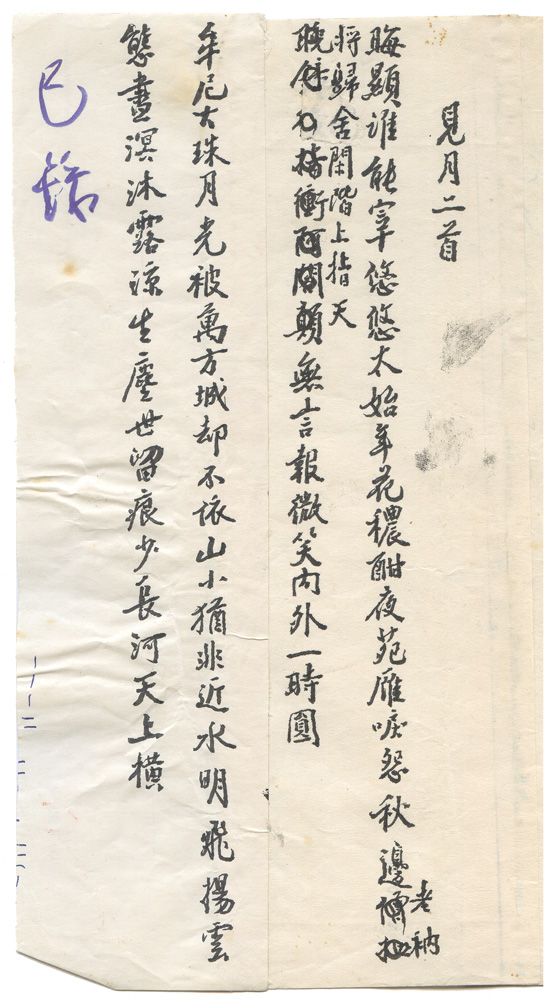 見月二首
晦顯誰能宰悠悠太始年花穠酣夜苑雁唳怨秋邊
老衲
將歸舍閑階上指天
晚指衝顛無言報微笑內外一時圓
牟尼大珠月光被萬方城却不依山小猶非近水明飛揚雲
態盡溟沐露涼生塵世留痕少長河天上橫
已